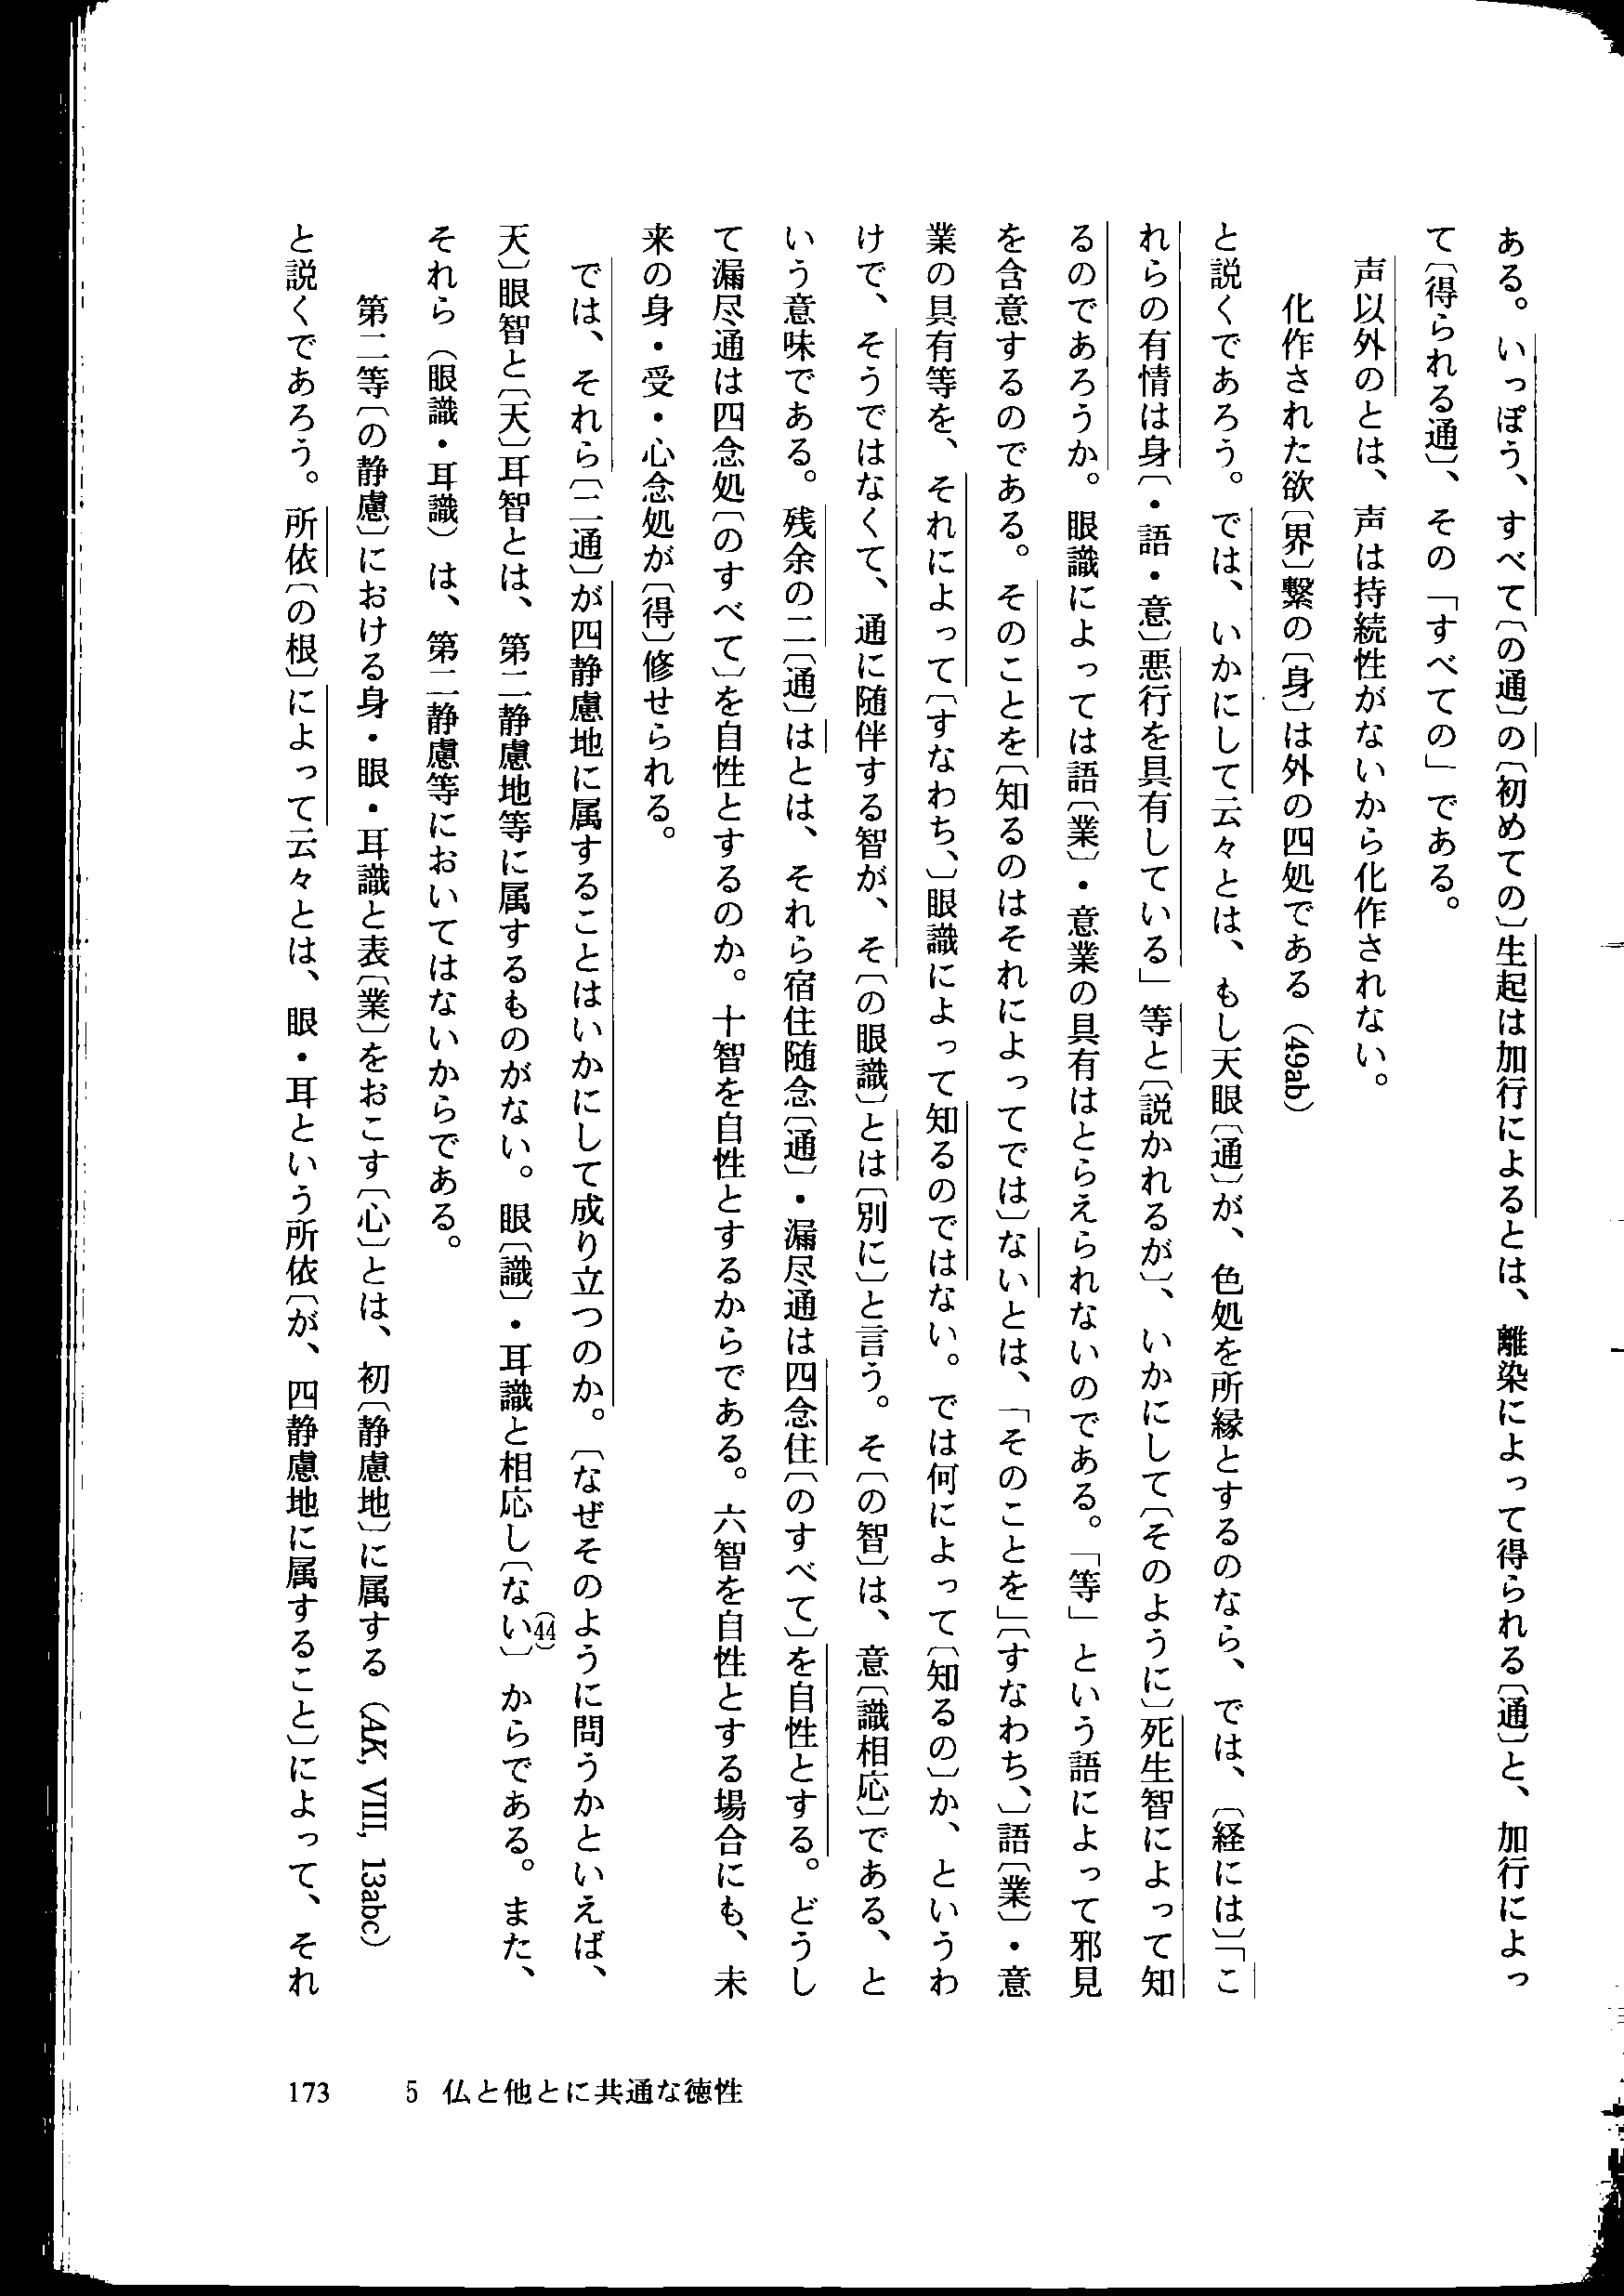 ある。いっぽう、すべて〔の通〕の〔初めての〕生起は加行によるとは、離染によって得られる〔通〕と、加行によっ
て〔得られる通〕、その「すべての」である。
声以外のとは、声は持続性がないから化作されない。
化作された欲〔界〕繋の〔身〕は外の四処である（49ab）
と説くであろう。では、いかにして云々とは、もし天眼〔通〕が、色処を所縁とするのなら、では、〔経には〕「こ
れらの有情は身〔・語・意〕悪行を具有している」等と〔説かれるが〕、いかにして〔そのように〕死生智によって知
るのであろうか。眼識によっては語〔業〕・意業の具有はとらえられないのである。「等」という語によって邪見
を含意するのである。そのことを〔知るのはそれによってでは〕ないとは、「そのことを」〔すなわち、〕語〔業〕・意
業の具有等を、それによって〔すなわち、〕眼識によって知るのではない。では何によって〔知るの〕か、というわ
けで、そうではなくて、通に随伴する智が、そ〔の眼識〕とは〔別に〕と言う。そ〔の智〕は、意〔識相応〕である、と
いう意味である。残余の二〔通〕はとは、それら宿住随念〔通〕・漏尽通は四念住〔のすべて〕を自性とする。どうし
て漏尽通は四念処〔のすべて〕を自性とするのか。十智を自性とするからである。六智を自性とする場合にも、未
来の身・受・心念処が〔得〕修せられる。
では、それら〔二通〕が四静慮地に属することはいかにして成り立つのか。〔なぜそのように問うかといえば、
天〕眼智と〔天〕耳智とは、第二静慮地等に属するものがない。眼〔識〕・耳識と相応し〔ない〕(44)からである。また、
それら（眼識・耳識）は、第二静慮等においてはないからである。
第二等〔の静慮〕における身・眼・耳識と表〔業〕をおこす〔心〕とは、初〔静慮地〕に属する（AK, VIII, 13abc）
と説くであろう。所依〔の根〕によって云々とは、眼・耳という所依〔が、四静慮地に属すること〕によって、それ
173 5 仏と他とに共通な徳性